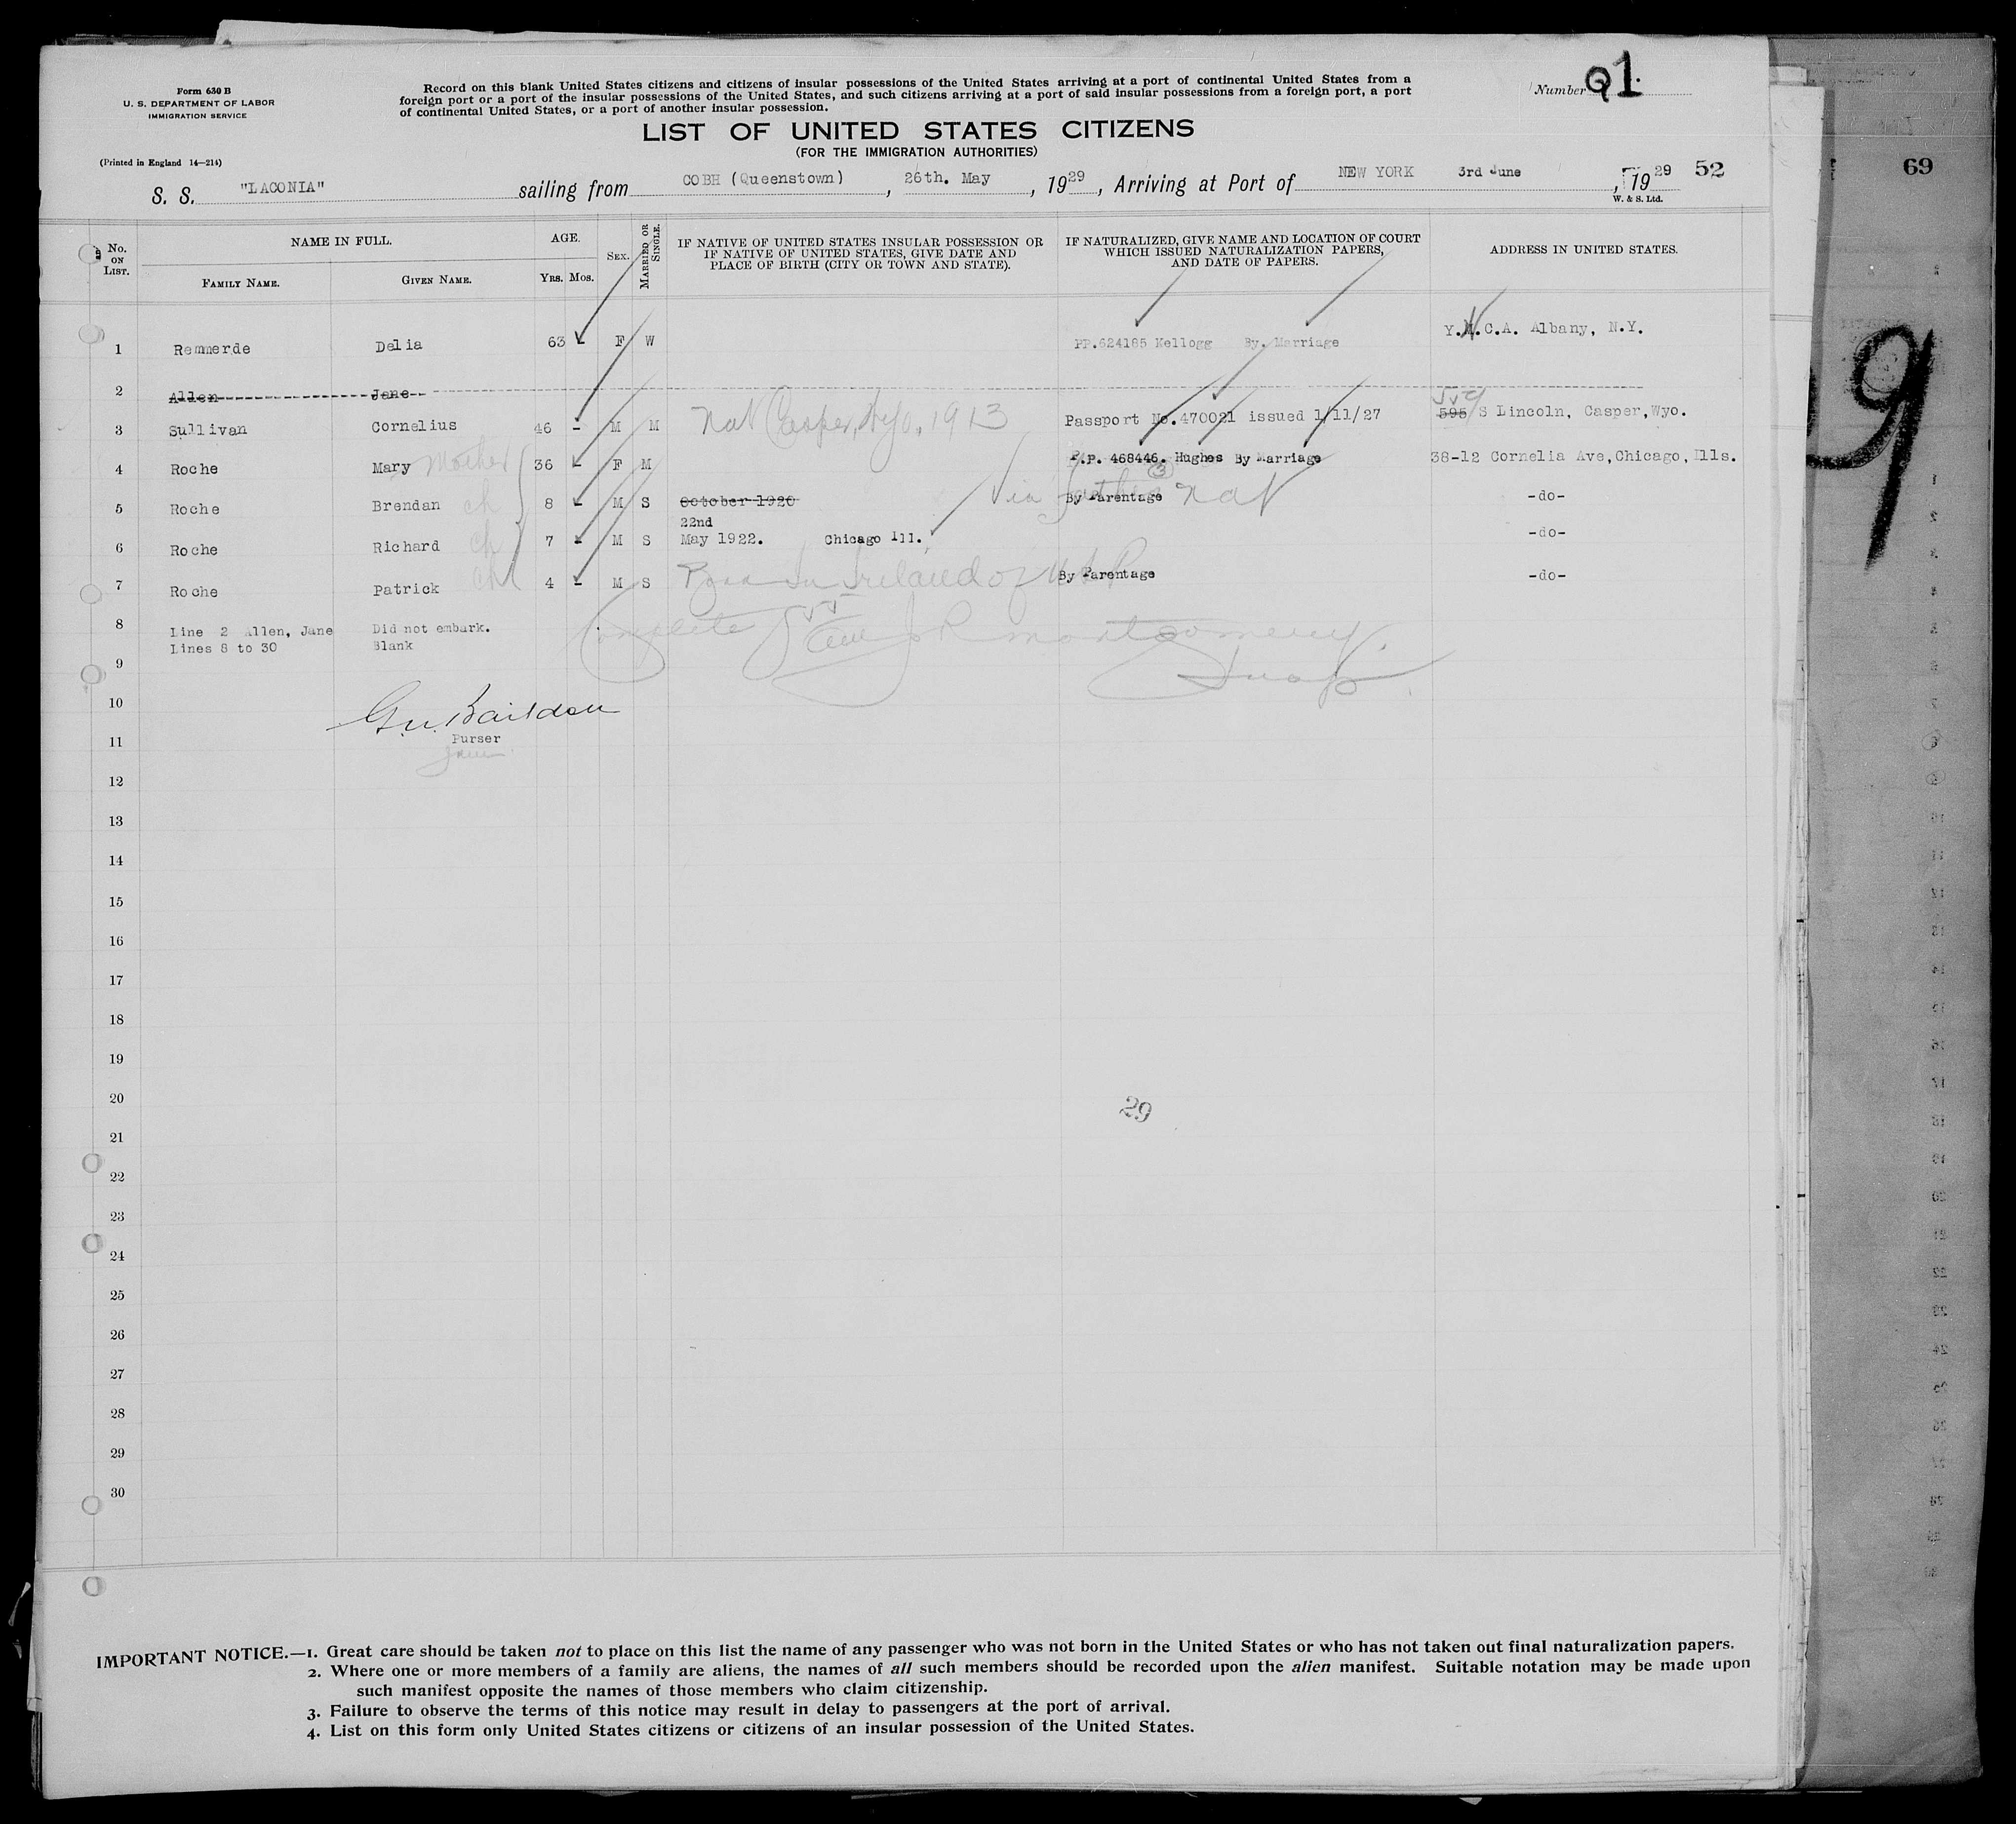 Form 630 B
U. S. DEPARTMENT OF LABOR
IMMIGRATION SERVICE
(Printed in England 14—214)
Record on this blank United States citizens and citizens of insular possessions of the United States arriving at a port of continental United States from a
foreign port or a port of the insular possessions of the United States, and such citizens arriving at a port of said insular possessions from a foreign port, a port
of continental United States, or a port of another insular possession.
Number Q1.
LIST OF UNITED STATES CITIZENS
(FOR THE IMMIGRATION AUTHORITIES)
S. S. "LACONIA" sailing from COBH (Queenstown), 26th. May, 1929, Arriving at Port of NEW YORK 3rd June, 1929 52
W. & S. Ltd.
69
No. ON LIST.
NAME IN FULL.
FAMILY NAME. GIVEN NAME.
AGE.
YRS. MOS.
SEX.
MARRIED OR SINGLE.
IF NATIVE OF UNITED STATES INSULAR POSSESSION OR
IF NATIVE OF UNITED STATES, GIVE DATE AND
PLACE OF BIRTH (CITY OR TOWN AND STATE).
IF NATURALIZED, GIVE NAME AND LOCATION OF COURT
WHICH ISSUED NATURALIZATION PAPERS,
AND DATE OF PAPERS.
ADDRESS IN UNITED STATES.
1 Remmerde Delia 63 - F W PP.624185 Kellogg By. Marriage Y.M.C.A. Albany, N.Y.
2 Allen Jane
3 Sullivan Cornelius 46 - M M Nat Casper, Wyo, 1913 Passport No.470021 issued 1/11/27 595 S Lincoln, Casper, Wyo.
4 Roche Mary Mother 36 - F M P.P. 468446. Hughes By Marriage 38-12 Cornelia Ave, Chicago, Ills.
5 Roche Brendan ch 8 - M S October 1920 By Parentage via father's nat -do-
6 Roche Richard ch 7 - M S 22nd May 1922. Chicago Ill. -do-
7 Roche Patrick ch 4 - M S Born in Ireland of By Parentage -do-
8 Line 2 Allen, Jane Did not embark.
Lines 8 to 30 Blank
Complete J R Montgomery
Insp
9
10
G.W. Baildon
11
Purser
12
13
14
15
16
17
18
19
20
29
21
22
23
24
25
26
27
28
29
30
IMPORTANT NOTICE.—1. Great care should be taken not to place on this list the name of any passenger who was not born in the United States or who has not taken out final naturalization papers.
2. Where one or more members of a family are aliens, the names of all such members should be recorded upon the alien manifest. Suitable notation may be made upon
such manifest opposite the names of those members who claim citizenship.
3. Failure to observe the terms of this notice may result in delay to passengers at the port of arrival.
4. List on this form only United States citizens or citizens of an insular possession of the United States.